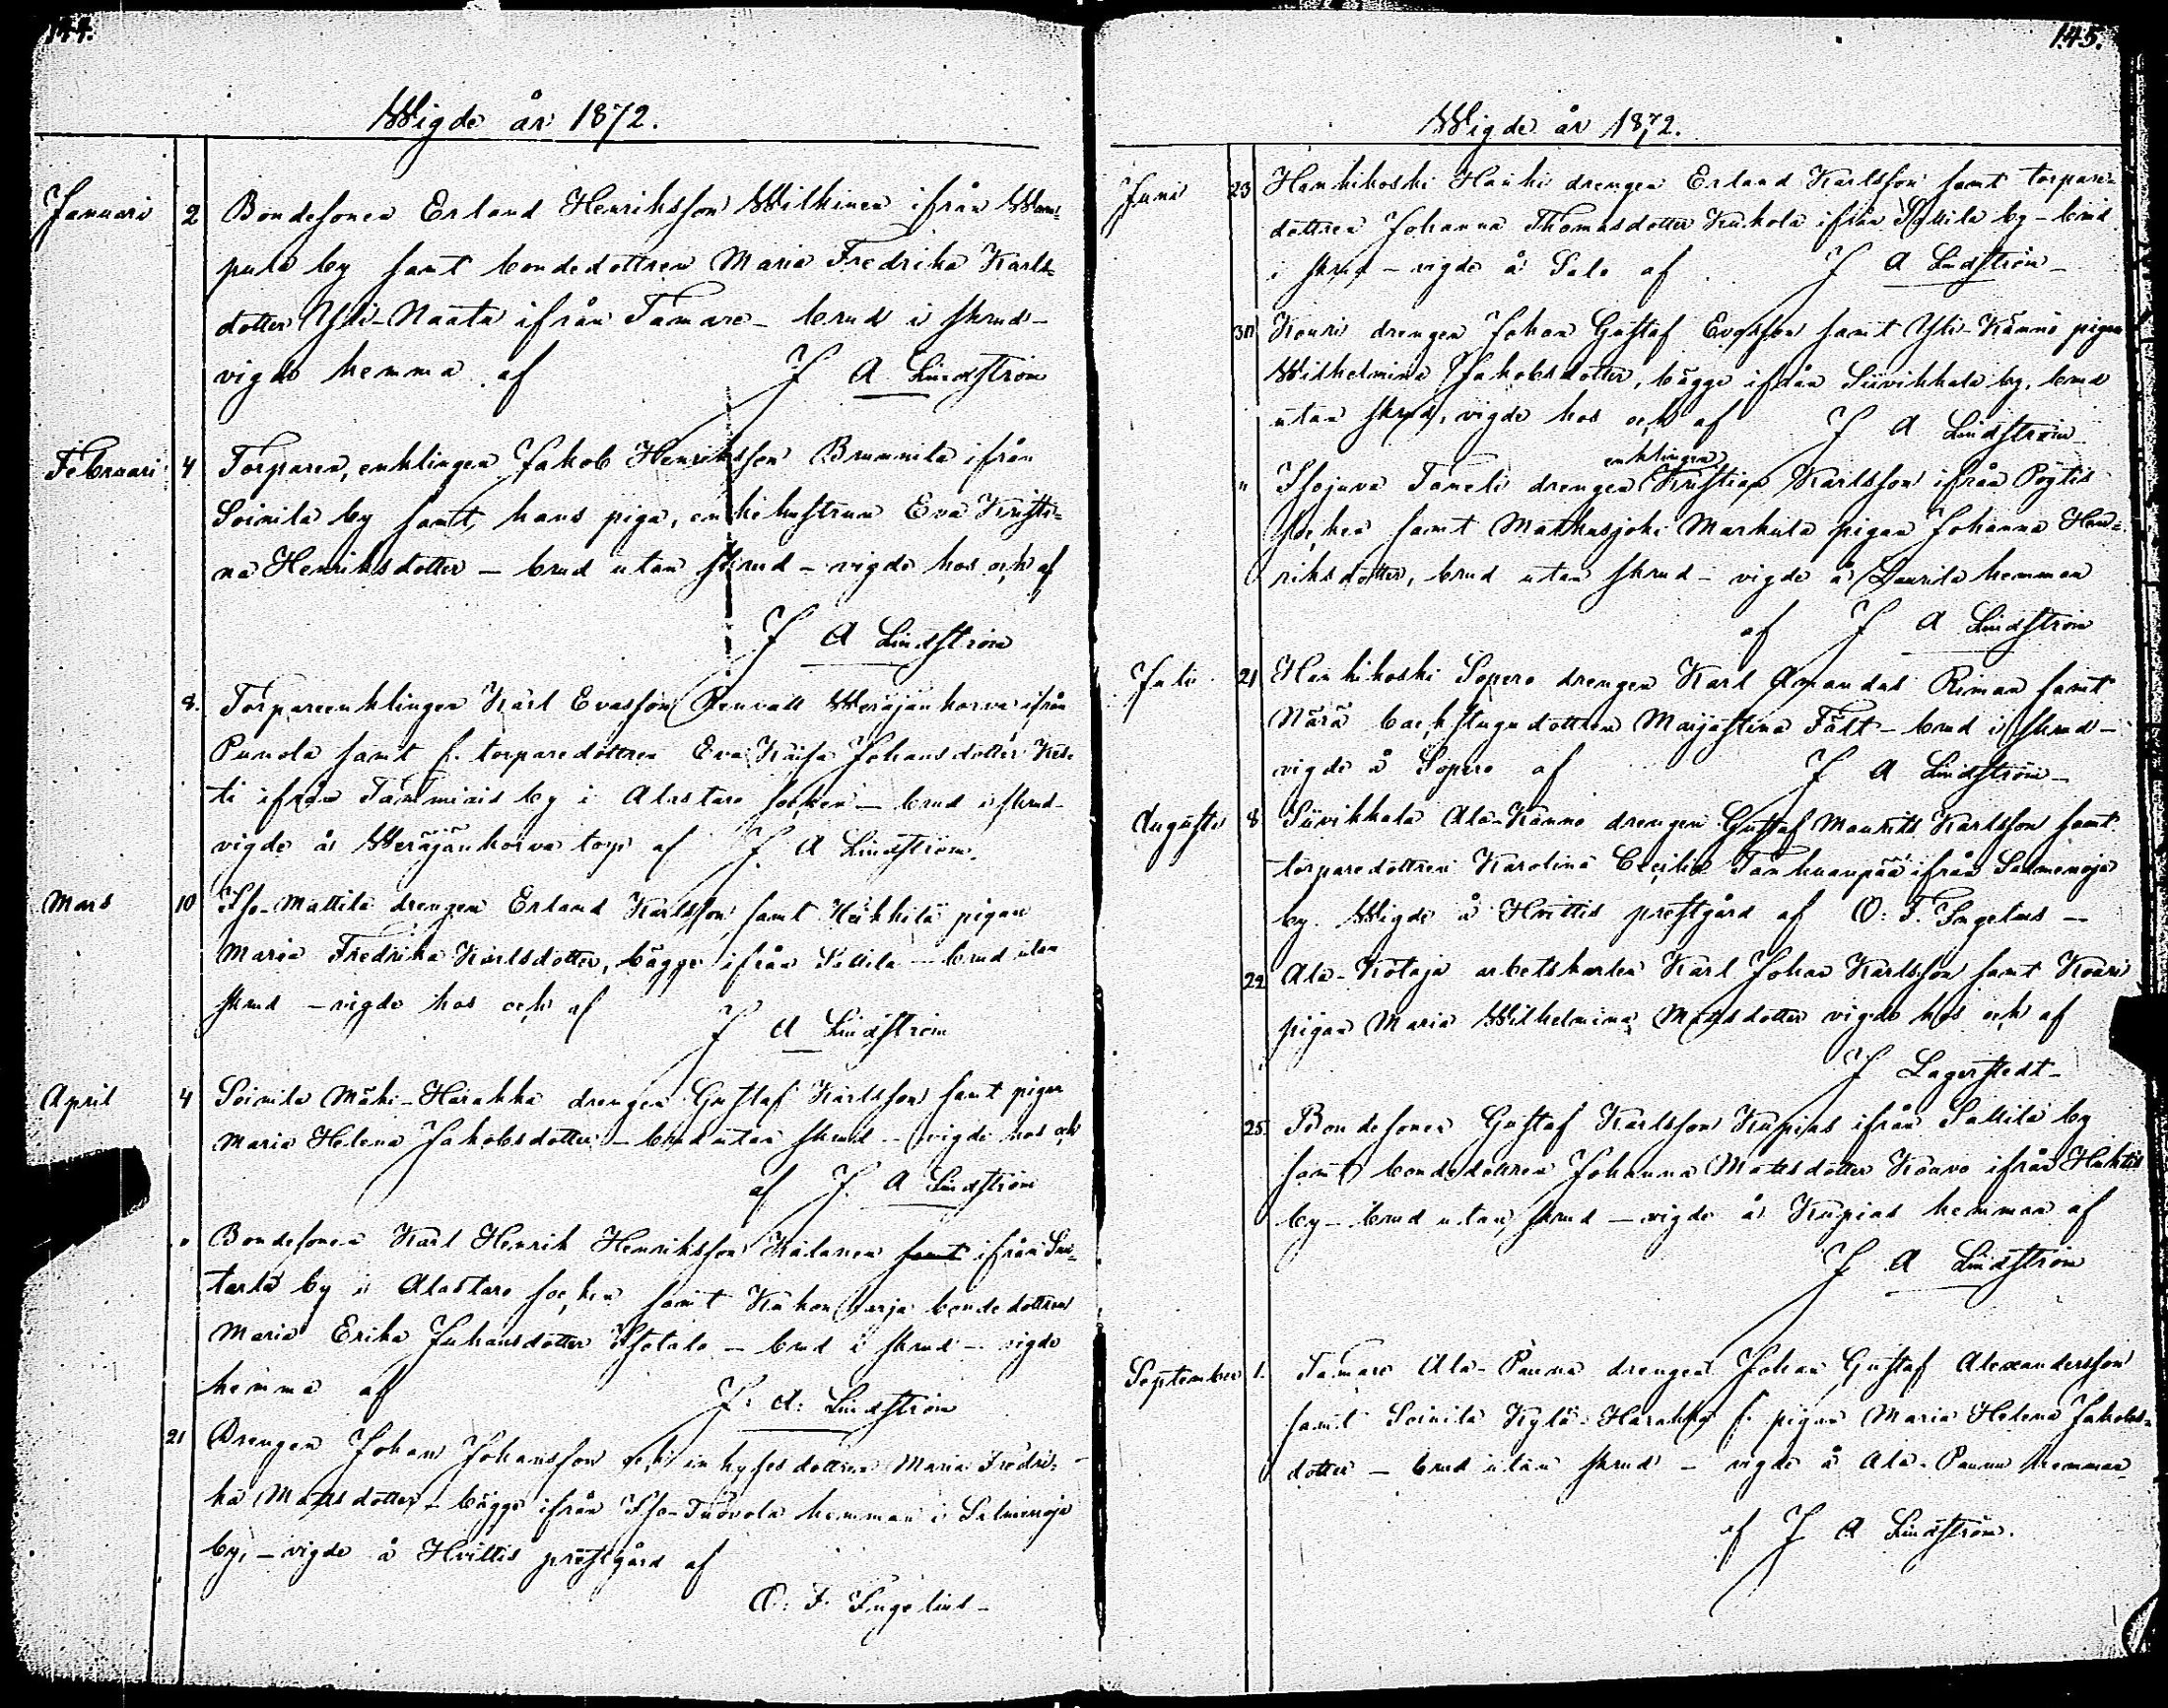 144.
Wigde år 1872.
Januari 2 Bondesonen Erland Henriksson Wilkinen ifrån Wam-
pula by samt bondedottren Maria Fredrika Karls-
dotter Yli-Naata ifrån Tamare - brud i skrud -
vigde hemma af J A Lindström
Februari 4 Torparen, enklingen Jakob Henriksson Brunnila ifrån
Soinila by samt, hans piga, enkehustrun Eva Kristi-
na Henriksdotter - brud utan skrud - vigde hos och af
J A Lindström
8. Torpareenklingen Karl Evasson Renvall Weräjänkorva ifrån
Punola samt f. torparedottren Eva Kaisa Johansdotter
ti ifrån Tamminis by i Alastaro socken - brud i skrud -
vigde å Weräjänkorva torp af J. A Lindström.
Mars 10 Iso-Mattila drengen Erland Karlsson samt Heikkilä pigan
Maria Fredrika Karlsdotter, bägge ifrån Sallila - brud utan
skrud - vigde hos och af J A Lindström
April 4 Soinila Mäki-Harakka drengen Gustaf Karlsson samt pigan
Maria Helena Jakobsdotter - brud utan skrud - vigde hos och
af J. A Lindström
" Bondesonen Karl Henrik Henriksson samt ifrån
tarla by i Alastaro socken samt Kukonharja bondedottren
Maria Erika Juhansdotter Isotalo - brud i skrud - vigde
hemma af J. A. Lindström
21 Drengen Johan Johansson och inhysesdottren Maria Fredri-
ka Mattsdotter - bägge ifrån Iso-Tuovola hemman i Salmenoja
by, - vigde å Hvittis prestgård af
O. F. Ingelius -
145.
Wigde år 1872.
Juni 23 Hankikoski Hauki drengen Erland Karlsson samt torpare-
dottren Johanna Thomasdotter Kukola ifrån Sallila by - brud
i skrud - vigde å Salo af J A Lindström -
30 Kouri drengen Johan Gustaf Evasson samt Yli-Känno pigan
Wilhelmina Jakobsdotter, bägge ifrån Suvikkala by, brud
utan skrud, vigde hos och af J A Lindström
enklingen
" Isojuva Taneli drengen Kristian Karlsson ifrån Pöytis
socken samt Matkusjoki Markula pigan Johanna Hen-
riksdotter, brud utan skrud - vigde å Laurila hemman
af J A Lindström
Juli 21 Hankikoski Sopero drengen Karl Amandus Riman samt
Närä backstugudottren Maijastina Fält - brud i skrud -
vigde å Sopero af J A Lindström -
Augusti 8 Suvikkala Ala-Känno drengen Gustaf Maurits Karlsson samt
torparedottren Karolina Cecilia Tanhuanpää ifrån Salmenoja
by. Wigde å Hvittis prestgård af O. F. Ingelius -
22 Ala-Kötaja arbetskarlen Karl Johan Karlsson samt Kouri
pigan Maria Wilhelmina Mattsdotter vigde hos och af
J Lagerstedt -
25. Bondesonen Gustaf Karlsson Kupias ifrån Sallila by
samt bondedottren Johanna Mattsdotter Kouvo ifrån Huhtis
by - brud utan skrud - vigde å Kupias hemman af
J A Lindström
September 1. Tamare Ala-Panna drengen Johan Gustaf Alexandersson
samt Soinila Kylä-Harakka f. pigan Maria Helena Jakobs-
dotter - brud utan skrud - vigde å Ala-Panna hemman
af J A Lindström.